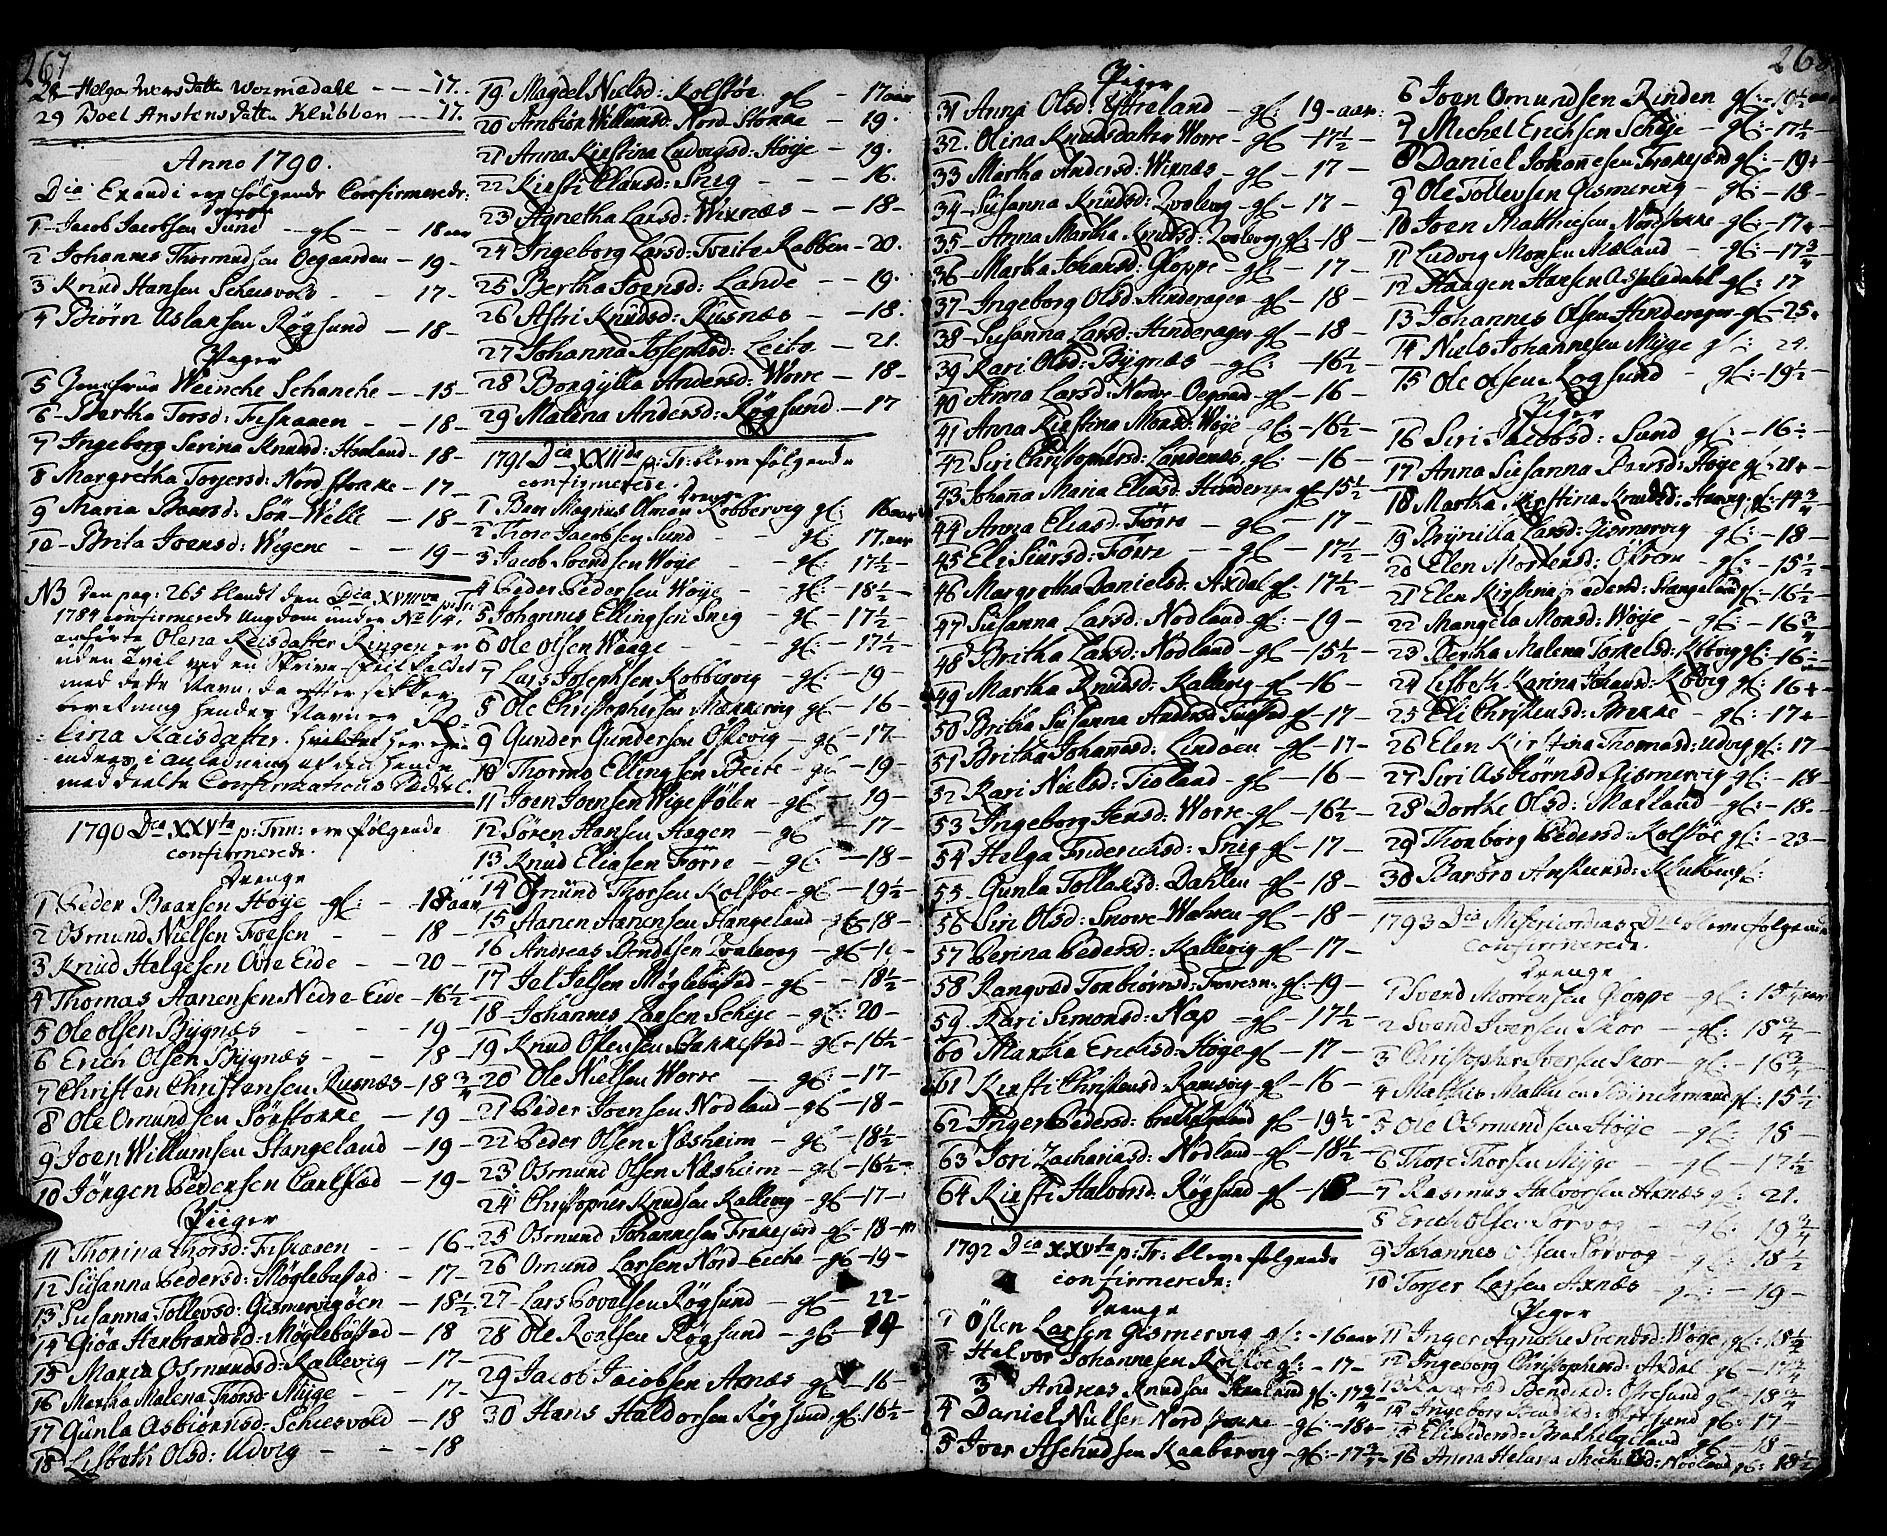 267
28 Helga Iversdatter Wormedahl - - - 17.
29 Boel Anstensdatter Klubben - - 17.
Anno 1790.
Dca Exaudi ere følgende Confirmerede:
Drenge
1 Jacob Jacobsen Sund - gl - - 18 aar
2 Johannes Thormundsen Oegaarden - 19 -
3 Knud Hansen Scheisvold - - 17 -
4 Biørn Aslaksen Røgsund - 18 -
Piger
5 Jomfrue Wenche Schanche - - 15 -
6 Bertha Torsd: Fiskaaen - - 18 -
7 Ingeborg Serina Knudsd: Houland - 18 -
8 Margretha Torgersd: Nordstokke - 17 -
9 Maria Baarsd: Sør-Welle - 18 -
10 Brita Joensd: Wigene - - 19 -
NB den pag: 265 blandt den Dca XVIIIva p: Tr:
1784 confirmerede Ungdom under No 14,
anførte Olena Reisdatter Ringen er
uden Tvil ved en Skrive-feil kaldet
med dette Navn, da efter sikker
beretning hendes Navn er
lina Raisdatter.
med deelte Confirmations Seddel.
1790 Dca XXVta p: Trin: ere følgende
confirmerede.
Drenge
1 Peder Baarsen Høje - gl: - - 18 aar
2 Osmund Nielsen Foesen - - 18 -
3 Knud Helgesen Ovre Eide - - 20 -
4 Thomas Aanensen Nedre-Eide - 16½ -
5 Ole Olsen Bÿgnæs - - - 19 -
6 Erich Olsen Bÿgnæs - - 18 -
7 Christen Christensen Rusnæs - 18¾
8 Ole Omundsen Sørstokke - 19 -
9 Joen Willumsen Stangeland - 19 -
10 Jørgen Pedersen Carlstad - 19 -
Piiger
11 Thorina Thorsd: Fiskaaen - 16 -
12 Susanna Pedersd: Møglebustad - 17 -
13 Susanna Tollevsd: Gismervigøen - 18½ -
14 Giøa Henbrandsd: Møglebustad - 18
15 Maria Osmundsd: Kallevig - 17 -
16 Martha Malena Thorsd Mijge - - 17 -
17 Gunla Asbiørnsd: Schiesvold - 18
18 Lisbeth Olsd: Udvig - - - 18
19 Magdel Nielsd: Kolstøe gl - 17 aar
20 Anbiør Willumsd: Nord Stokke - 19.
21 Anna Kirstina Ludvigsd: Høije - 19.
22 Kirsti Clausd: Snig - - - 16.
23 Agnetha Larsd: Wixnæs - - 18 -
24 Ingeborg Larsd: Tveite Rabben - 20.
25 Bertha Joensd: Lande - 19.
26 Astri Knudsd: Rusnæs - - 18.
27 Johanna Josephsd: Leite - 21.
28 Borgÿlla Andersd: Worre - 18 -
29 Malena Andersd: Røgsund - 17
1791 Dca XXIIda p: Tr: bleve følgende
confirmerede.
Drenge
1 Ban Magnus Olman Kobbervig gl: 16 aar
2 Thore Jacobsen Sund - - gl: 17. aar
3 Jacob Svendsen Wøije - gl: 17½ -
4 Peder Pedersen Wøije - gl: - 18½ -
5 Johannes Ellingsen Snig - gl - 17½ -
6 Ole Olsen Waage - - gl: - 17½ -
7 Lars Josephsen Kobbervig - gl: - 19 -
8 Ole Christophersen Mekkevig - gl - 16 -
9 Gunder Gundersen Østevig - gl - 17 -
10 Thormo Ellingsen Beite - gl - 19 -
11 Joen Joensen Wigestølen - gl - 19 -
12 Søren Hansen Hagen - gl - 17 -
13 Knud Eliasen Førre - gl: - 18 -
14 Omund Thorsen Kolstøe - gl - 19½ -
15 Aanen Aanensen Stangeland - gl - 18 -
16 Andreas Bendtsen Qvalevog - gl - 1
17 Jel Jelsen Møglebustad - gl - 18½ -
18 Johannes Larsen Scheje - gl: - 20 -
19 Knud Ostensen Bakkestad - gl - 16½ -
20 Ole Nielsen Worre - gl: - 17 -
21 Peder Joensen Nodland - gl - 18 -
22 Peder Olsen Næsheim - gl - 18½ -
23 Osmund Olsen Næsheim - gl - 16½ -
24 Christopher Knudsen Kallevig - gl - 17 -
25 Osmund Johannesen Frakkejord - gl - 18 -
26 Omund Larsen Nord-Eiche - gl - 19 -
27 Lars Povelsen Røgsund - gl - 22 -
28 Ole Roalsen Røgsund - gl - 19
29 Jacob Jacobsen Axnæs - gl - 16 -
30 Hans Haldorsen Røgsund gl: 16½ -
268
Piger
31 Anna Olsd: Østreland - gl: 19 - aar:
32. Olina Knudsdatter Worre - gl - 17½ -
33 Martha Andersd: Wixnæs - gl - 17 -
34 Susanna Knudsd: Qvalevog - gl - 17 -
35 Anna Martha Knudsd: Qvalevog, gl: - 18 -
36 Martha Johansd: Gloppe - gl: - 17 -
37 Ingeborg Olsd: Hinderager - gl - 18 -
38 Susanna Larsd: Hinderager - gl - 18 -
39 Kari Olsd: Bÿgnæs - gl: - 16½ -
40 Anna Larsd: Nordre Oegaard - gl - 16 -
41 Anna Kirstina Monsd: Wøije - gl - 16½ -
42 Siri Christophersd: Landenæs, gl - 16 -
43 Johanna Maria Eliasd: Hinderager gl 15½ -
44 Anna Eliasd: Førre - gl - 17 -
45 Eli Siursd: Førre - - gl - 17½ -
46 Margretha Danielsd: Axdal gl: 17½ -
47 Susanna Larsd: Nodland - gl: - 19 -
48 Britha Larsd: Nodland - gl - 15½ -
49 Martha Knudsd: Kallevig - gl - 16 -
50 Britha Susanna Andersd: gl - 17 -
51 Britha Johannsd: Lindøen - gl - 17 -
52 Kari Nielsd: Tioland - gl - 16 -
53 Ingeborg Jensd: Worre - gl - 16½ -
54 Helga Friderichsd: Snig gl - 17 -
55 Gunla Tollaksd: Dahlen - gl - 18 -
56 Siri Olsd: Snorre-Wahren - gl - 18 -
57 Berina Pedersd: Kallevig - gl - 17 -
58 Rangved Torbiørnsd: Foresn: gl - 19 -
59 Kari Simonsd: Nap - gl - 17½ -
60 Martha Erichsd: Høge - gl - 17 -
61 Kirsti Christensd Ramsvig - gl - 16 -
62 Inger Pedersd: brekkeland gl - 19½ -
63 Siri Zachariasd: Nodland - gl - 18½ -
64 Kirsti Halvorsd: Røgsund - gl - 18 -
1792 Dca XXVta p: Tr: bleve følgende
confirmerede:
Drenge
1 Østen Larsen Gismervig - gl: - 16 aar
2 Halvor Johannesen Kolstøe gl: - 17 -
3 Andreas Knudsen Haaland gl: 17¾ -
4 Daniel Nielsen Nordstokke - gl: - 18 -
5 Iver Aschildsen Kaabervig - gl: - 17¾ -
6 Joen Omundsen Rinden gl: - 19½ aar
7 Michel Erichsen Scheje - gl: - 17½ -
8 Daniel Johannesen Frakkejord gl: - 19 -
9 Ole Tollevsen Gismervig - gl: - 18 -
10 Joen Matthiesen Nordstokke - gl: - 17 -
11 Ludvig Monsen Mæland - gl: - 17¾
12 Haagen Hansen Aspeledahl gl: 17
13 Johannes Olsen Hinderager - gl - 25.
14 Niels Johannesen Mijge gl: 24.
15 Ole Olsen Røgsund - gl: - 19½ -
Piger
16 Siri Jacobsd: Sund gl: - 16 -
17 Anna Susanna Iversd: Høge gl: 21 -
18 Martha Kirstina Knudsd: gl: - 14¾
19 Brynilla Larsd: Gismervig gl: - 18 -
20 Elen Mortensd: Østrem - gl: - 15½ -
21 Elen Kirstina Pedersd: Stangeland gl: - 16½ -
22 Mangela Monsd: Wøije - gl: - 16¾
23 Bertha Malena Torkelsd: gl: - 16 -
24 Lisbeth Karina Johansd: Røvig gl: 16 -
25 Eli Christensd: Brekke - gl: - 17 -
26 Elen Kirstina Thomasd: Udvig gl: - 17 -
27 Siri Asbiørnsd Gismervig gl: - 18 -
28 Dorthe Olsd: Markland - gl: - 18 -
29 Thorborg Pedersd: Kolstøe gl: - 23 -
30 Barbro Anstensd: gl:
1793 Dca Misericordias Dni bleve følgende
confirmerede.
Drenge
1 Svend Mortensen Gloppe - gl: - aar
2 Svend Iversen Skor - gl: 18¾
3 Christopher Iversen Skor - gl: - 16¾
4 Mathis gl: 15½
5 Ole Osmundsen Høije - gl - 18 -
6 Thore Thorsen Mijge - gl - 17½
7 Rasmus Halvorsen Axnæs gl: 21.
8 Erich Olsen Sørvog - gl: 19¾
9 Johannes Olsen Sørvog - gl: 18½
10 Torger Larsen Axnæs - gl: - 19 -
Piger
11 Inger Agnethe Svendsd: Wøije, gl: 18½
12 Ingeborg Christophersd: Axdal gl - 17¾
13 Bendixd: Østresund gl - 18¾
14 Ingeborg gl: - 17 -
15 Eli Pedersd: Brakkeland gl - 18 -
16 Anna Helena Michelsd: Nodland gl: 18½